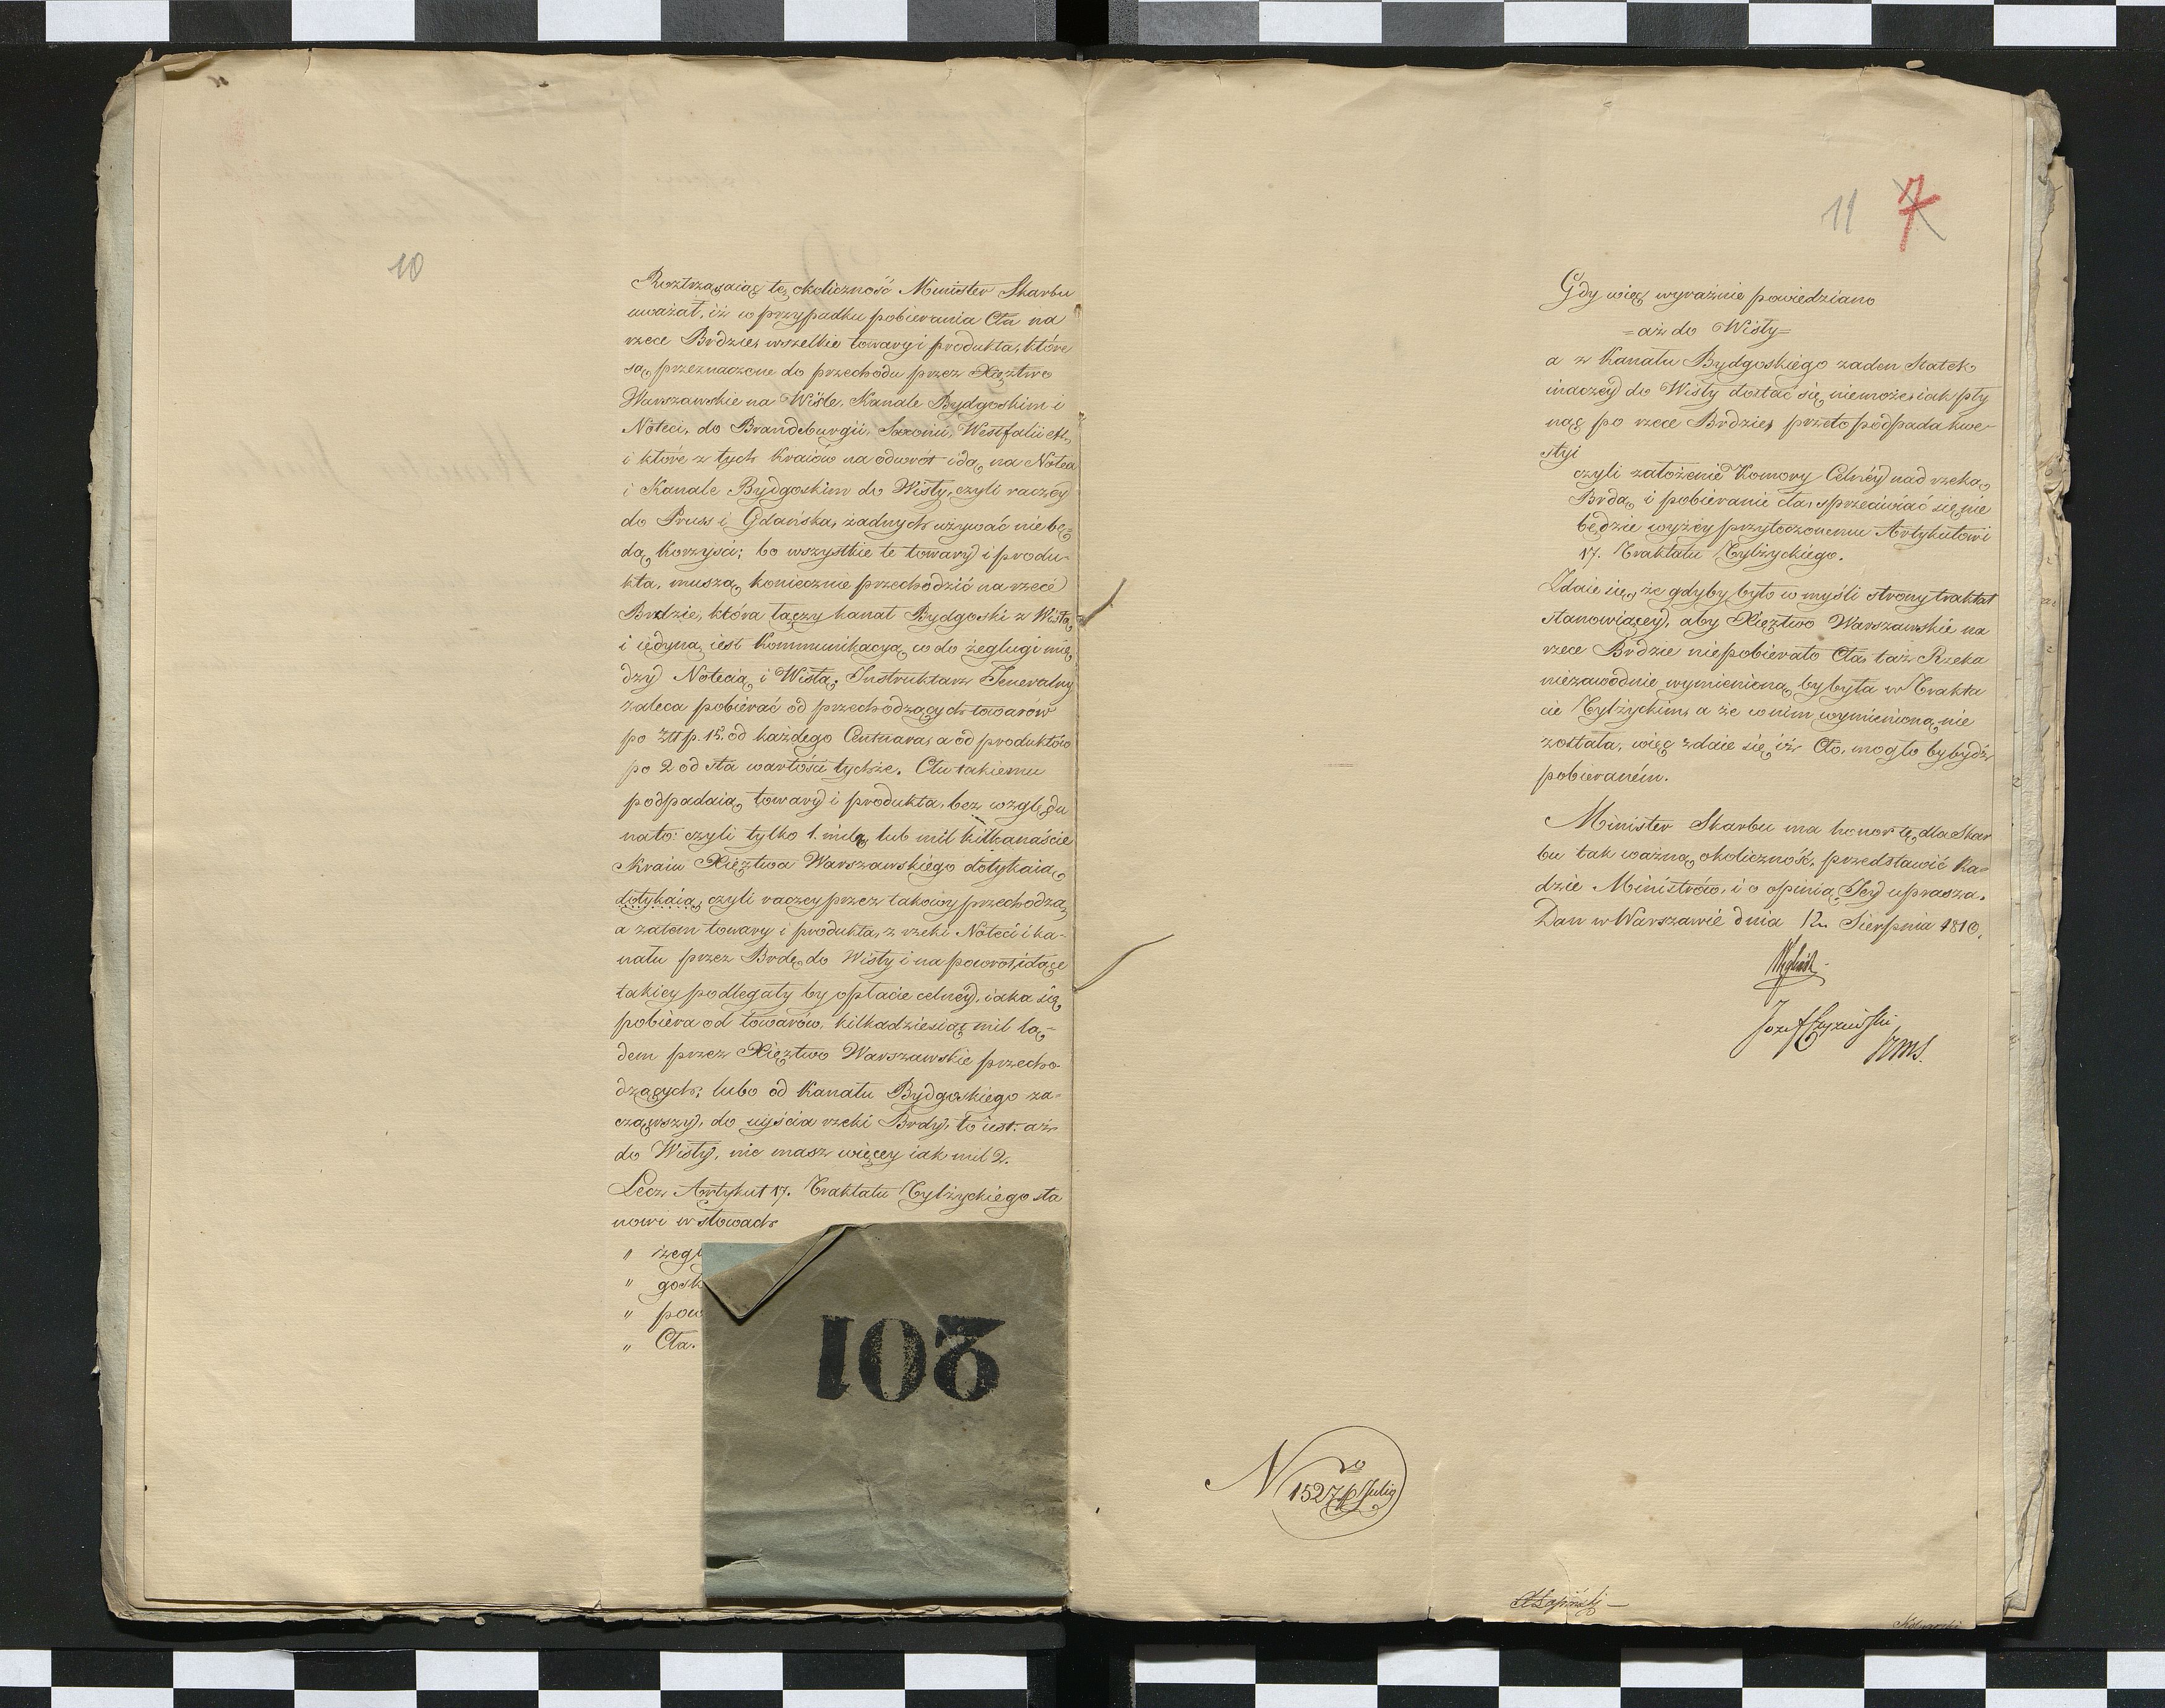 10
Roztrząsaiąc tę okoliczność Minister Skarbu
uważał, iż w przypadku pobierania Cła na
rzece Brdzie, wszelkie towary i produkta, które
są przeznaczone do przechodu przez Xięztwo
Warszawskie na Wiśle, Kanale Bydgoskim i
Noteci, do Brandeburgii, Saxonii, Westfalii etc,
i które z tych kraiów na odwrót idą na Noteci
i Kanale Bydgoskim do Wisły, czyli raczey
do Pruss i Gdańska, żadnych używać nie bę=
dą korzyści; bo wszystkie te towary i produ-
kta, muszą koniecznie przechodzić na rzece
Brdzie, która łączy kanał Bydgoski z Wisłą
i iedyną iest Kommunikacyą co do żeglugi mię
dzy Notecią i Wisłą. Instruktarz Jeneralny
zaleca pobierać od przechodzących towarów
po złł p. 15. od każdego Centnara, a od produktów
po 2 od sta wartości tychże. Cłu takiemu
podpadaią towary i produkta, bez względu
na to: czyli tylko 1. milę lub mil kilkanaście
kraiu Xięztwa Warszawskiego dotykaią
dotykaią, czyli raczey przez takowy przechodzą
a zatem towary i produkta, z rzeki Noteci i ka-
nału przez Brdę do Wisły i na powrót idące
takiey podlegały by opłacie celney, iaka się
pobiera od towarów, kilkadziesiąt mil lą-
dem przez Xięztwo Warszawskie przecho-
dzących; lubo od Kanału Bydgoskiego za-
cząwszy, do uyścia rzeki Brdy, to iest. aż
do Wisły, nie masz więcey iak mil 2.
Lecz Artykuł 17. Traktatu Tylżyckiego sta
nowi w słowach
" żegl
" gosk
" pow
" Cła.
201
11 7
Gdy więc wyraźnie powiedziano
=aż do Wisły=
a z Kanału Bydgoskiego żaden Statek
inaczey do Wisły dostać się niemoże, iak pły
nąc po rzece Brdzie, przeto podpada kwe-
styi
czyli założenie Komory Celnéy nad rzeką
Brdą, i pobieranie cła, sprzeciwiać się nie
będzie wyżéy przytoczonemu Artykułowi
17. Traktatu Tylżyckiego.
Zdaie się, że gdyby było w myśli strony traktat
stanowiącey, aby Xięztwo Warszawskie na
rzece Brdzie niepobierało Cła, taż Rzeka
niezawodnie wymienioną by była w Trakta
cie Tylżyckim, a że w nim wymienioną nie
została, więc zdaie się, iż Cło, mogło by bydź
pobieraném.
Minister Skarbu ma honor tę, dla Skar
bu tak ważną okoliczność, przedstawić Ra=
dzie Ministrów, i o opinią Jey uprasza.
Dan w Warszawie dnia 12. Sierpnia 1810.
Węgleński
Jozef
N ro
1527 Julig